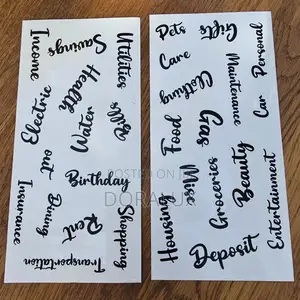 Income
Savings
Utilities
Health
Electric
Water
out
Birthday
Dining
Insurance
Rent
Shopping
Transportation
Pets
Gifts
Care
Personal
Clothing
Maintenance
Car
Food
Gas
Misc
Groceries
Beauty
Housing
Deposit
Entertainment
POSTED ON